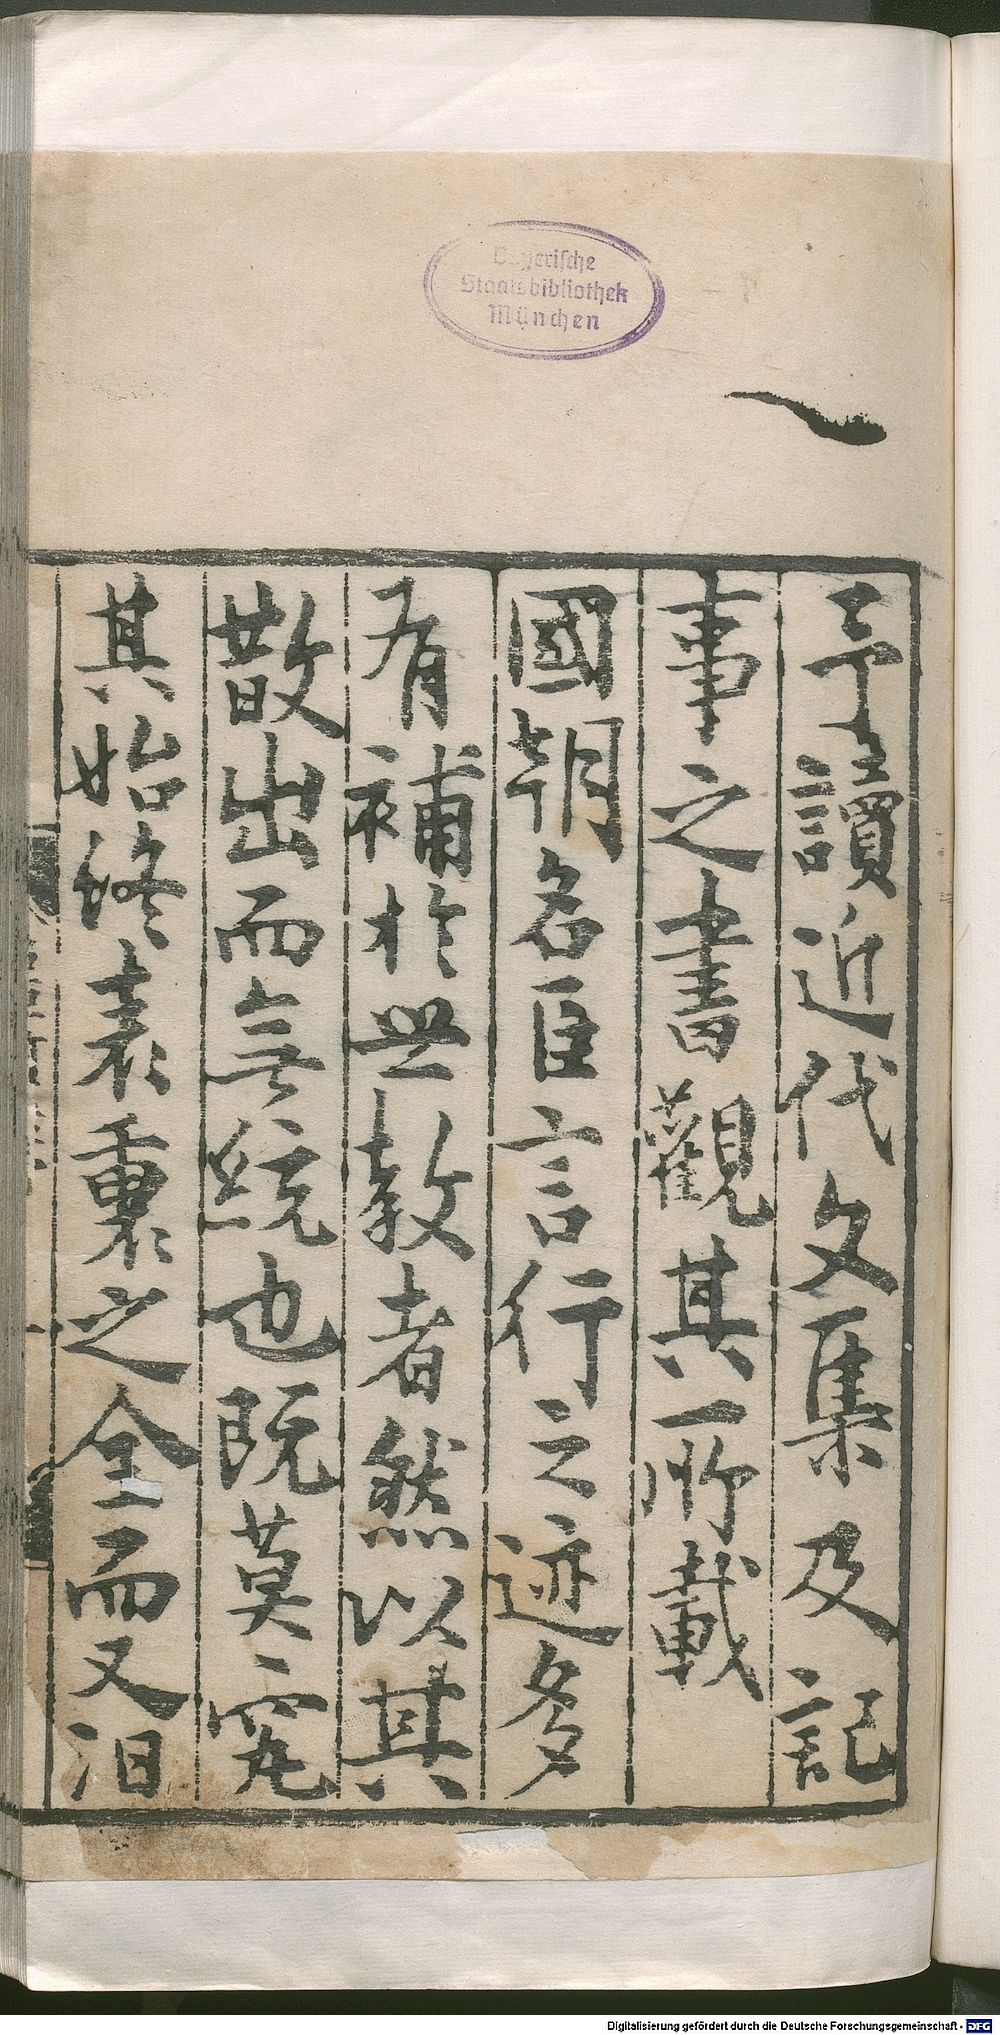 Bayerische
Staatsbibliothek
München
予讀近代文集及記
事之書觀其所載
國朝名臣言行之迹多
有補於世教者然以其
散出而無統也既莫究
其始終表裏之全而又汩
Digitalisierung gefördert durch die Deutsche Forschungsgemeinschaft - DFG